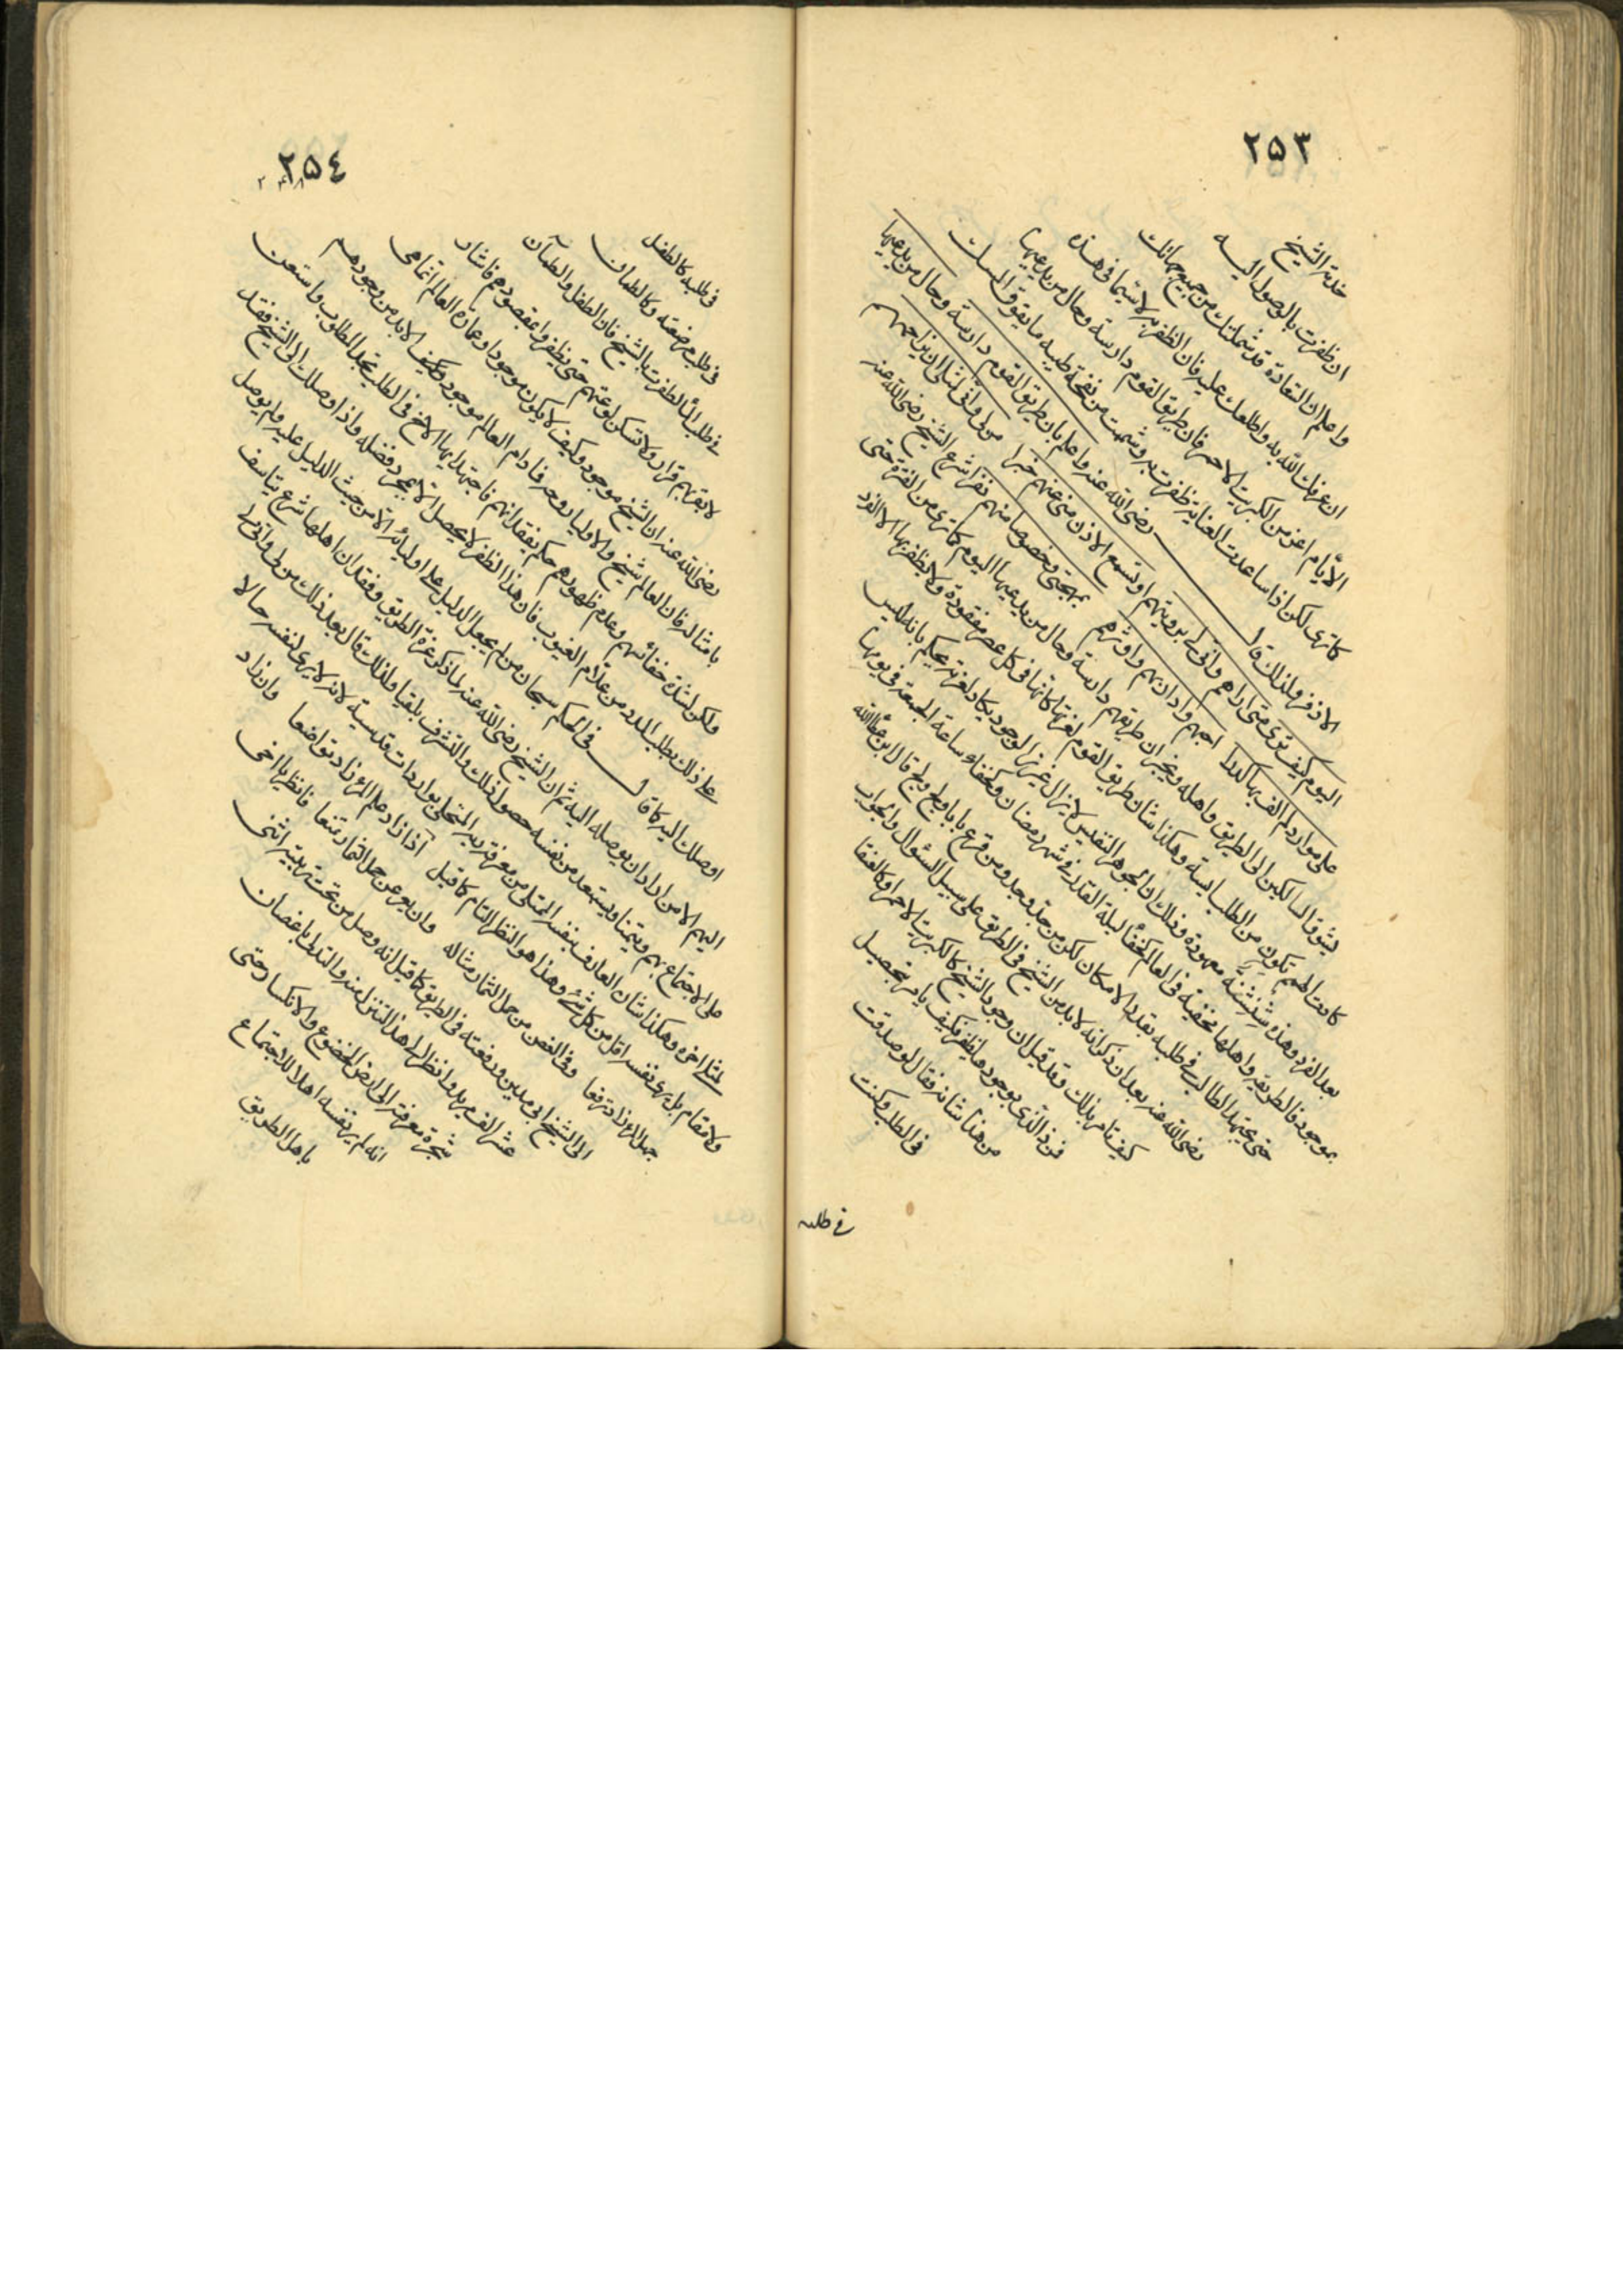 ٢٥٣
خدمة الشيخ
ان ظفرت بالوصول اليه
واعلم ان السعادة قد شملتك من جميع جهاتك
ان عرفك الله به واطلعك عليه فان الظفر به لا سيما في هذه
الأيام اعز من الكبريت الاحمر فان طريق القوم دارسة وحال من يدعيها
كما ترى لكن اذا ساعدت العناية ظفرت به وشممت من نفحة طيبه ما يفوق المسك
الاذفر ولذلك قال رضي الله عنه واعلم بان طريق القوم دارسة وحال من يدعيها
اليوم كيف ترى متى اراهم وانى لي برؤيتهم او تسمع الاذن مني عنهم خبرا من لي وانى لمثلي ان يزاحمهم
على موارد لم الف بها كدرا احبهم واداريهم واوثرهم بمهجتي وخصوصا منهم نفرا شرع الشيخ رضي الله عنه
يشوق السالكين الى الطريق واهله ويخبر ان طريقهم دارسة وحال من يدعيها اليوم كما ترى من الفترة حتى
كادت الهمم تكون من الطلب ايسة وهكذا شان طريق القوم لعزتها كانها في كل عصر مفقودة ولا يظفر بها الا الفرد
بعد الفرد وهذه شنشنة معهودة وذلك ان الجوهر النفيس لا يزال عزيز الوجود يكاد لعزته يحكم بانه ليس
بموجود فالطريقة واهلها مخفية في العالم كخفاء ليلة القدر في شهر رمضان وكخفاء ساعة الجمعة في يومها
حتى يجتهد الطالب في طلبه بقدر الامكان لكن من جد وجد ومن قرع بابا ولج ولج قال ابن عطا الله
رضي الله عنه بعد ان ذكر انه لابد من الشيخ في الطريق على سبيل السؤال والجواب
كيف تامر بذلك وقد قيل ان وجود الشيخ كالكبريت الاحمر وكالعنقا
فمن ذا الذي بوجودها يظفر فكيف يامر بتحصيل
من هذا شانه فقال لو صدقت
في الطلب وكنت
في طلبه
٢٥٤
في طلبه كالطفل
في طلب مرضعته وكالظمان
في طلب الماء لظفرت بالشيخ فان الطفل والظمآن
لا يقر بهم قرار ولا تسكن لوعتهم حتى يظفروا بمقصودهم فاشار
رضي الله عنه ان الشيخ موجود وكيف لا يكون موجودا وعمارة العالم انما هي
بامثاله فان العالم شخص والاولياء روحه فما دام العالم موجود وكيف لابد من وجودهم
ولكن لشدة خفائهم وعدم ظهورهم حكم بفقدانهم فاجتهد ايها الاخ في الطلب تجد المطلوب واستعن
على ذلك بطلب المدد من علام الغيوب فان هذا الظفر لا يحصل الا بمجرد فضله واذا اوصلك الى الشيخ فقد
اوصلك اليه كما قال في الحكم سبحان من لم يجعل الدليل على اوليائه الا من حيث الدليل عليه ولم يوصل
اليهم الا من اراد ان يوصله اليه ثم ان الشيخ رضي الله عنه لما ذكر عزة الطريق وفقدان اهلها شرع يتاسف
على الاجتماع بهم ويتمنا ويستبعد من نفسه حصول ذلك والتشرف بلقياه ولذلك قال بعد ذلك من لي وانى لي
لمثلي اخره وهكذا شان العارف بنفسه الممتلي من معرفة ربه المتحلي بواردات قدسية لانه لا يرى لنفسه حالا
ولا مقام بل يرى نفسه اقل من كل شئ وهذا هو النظر التام كما قيل اذا زاد علم المرء زاد تواضعا وان زاد
جهل المرء زاد ترفعا وفي الغصن من حمل الثمار مثاله وان يعر عن حمل الثمار تمنعا فانظر يا اخي
الى الشيخ ابي مدين ورفعته في الطريق كما قيل انه وصل من تحت تربيته اثنى
عشر الف مريد وانظر الى هذا التنزل منه والتدلي باغصان
شجرة معرفته الى ارض الخضوع والانكسار حتى
انه لم ير نفسه اهلا للاجتماع
باهل الطريق